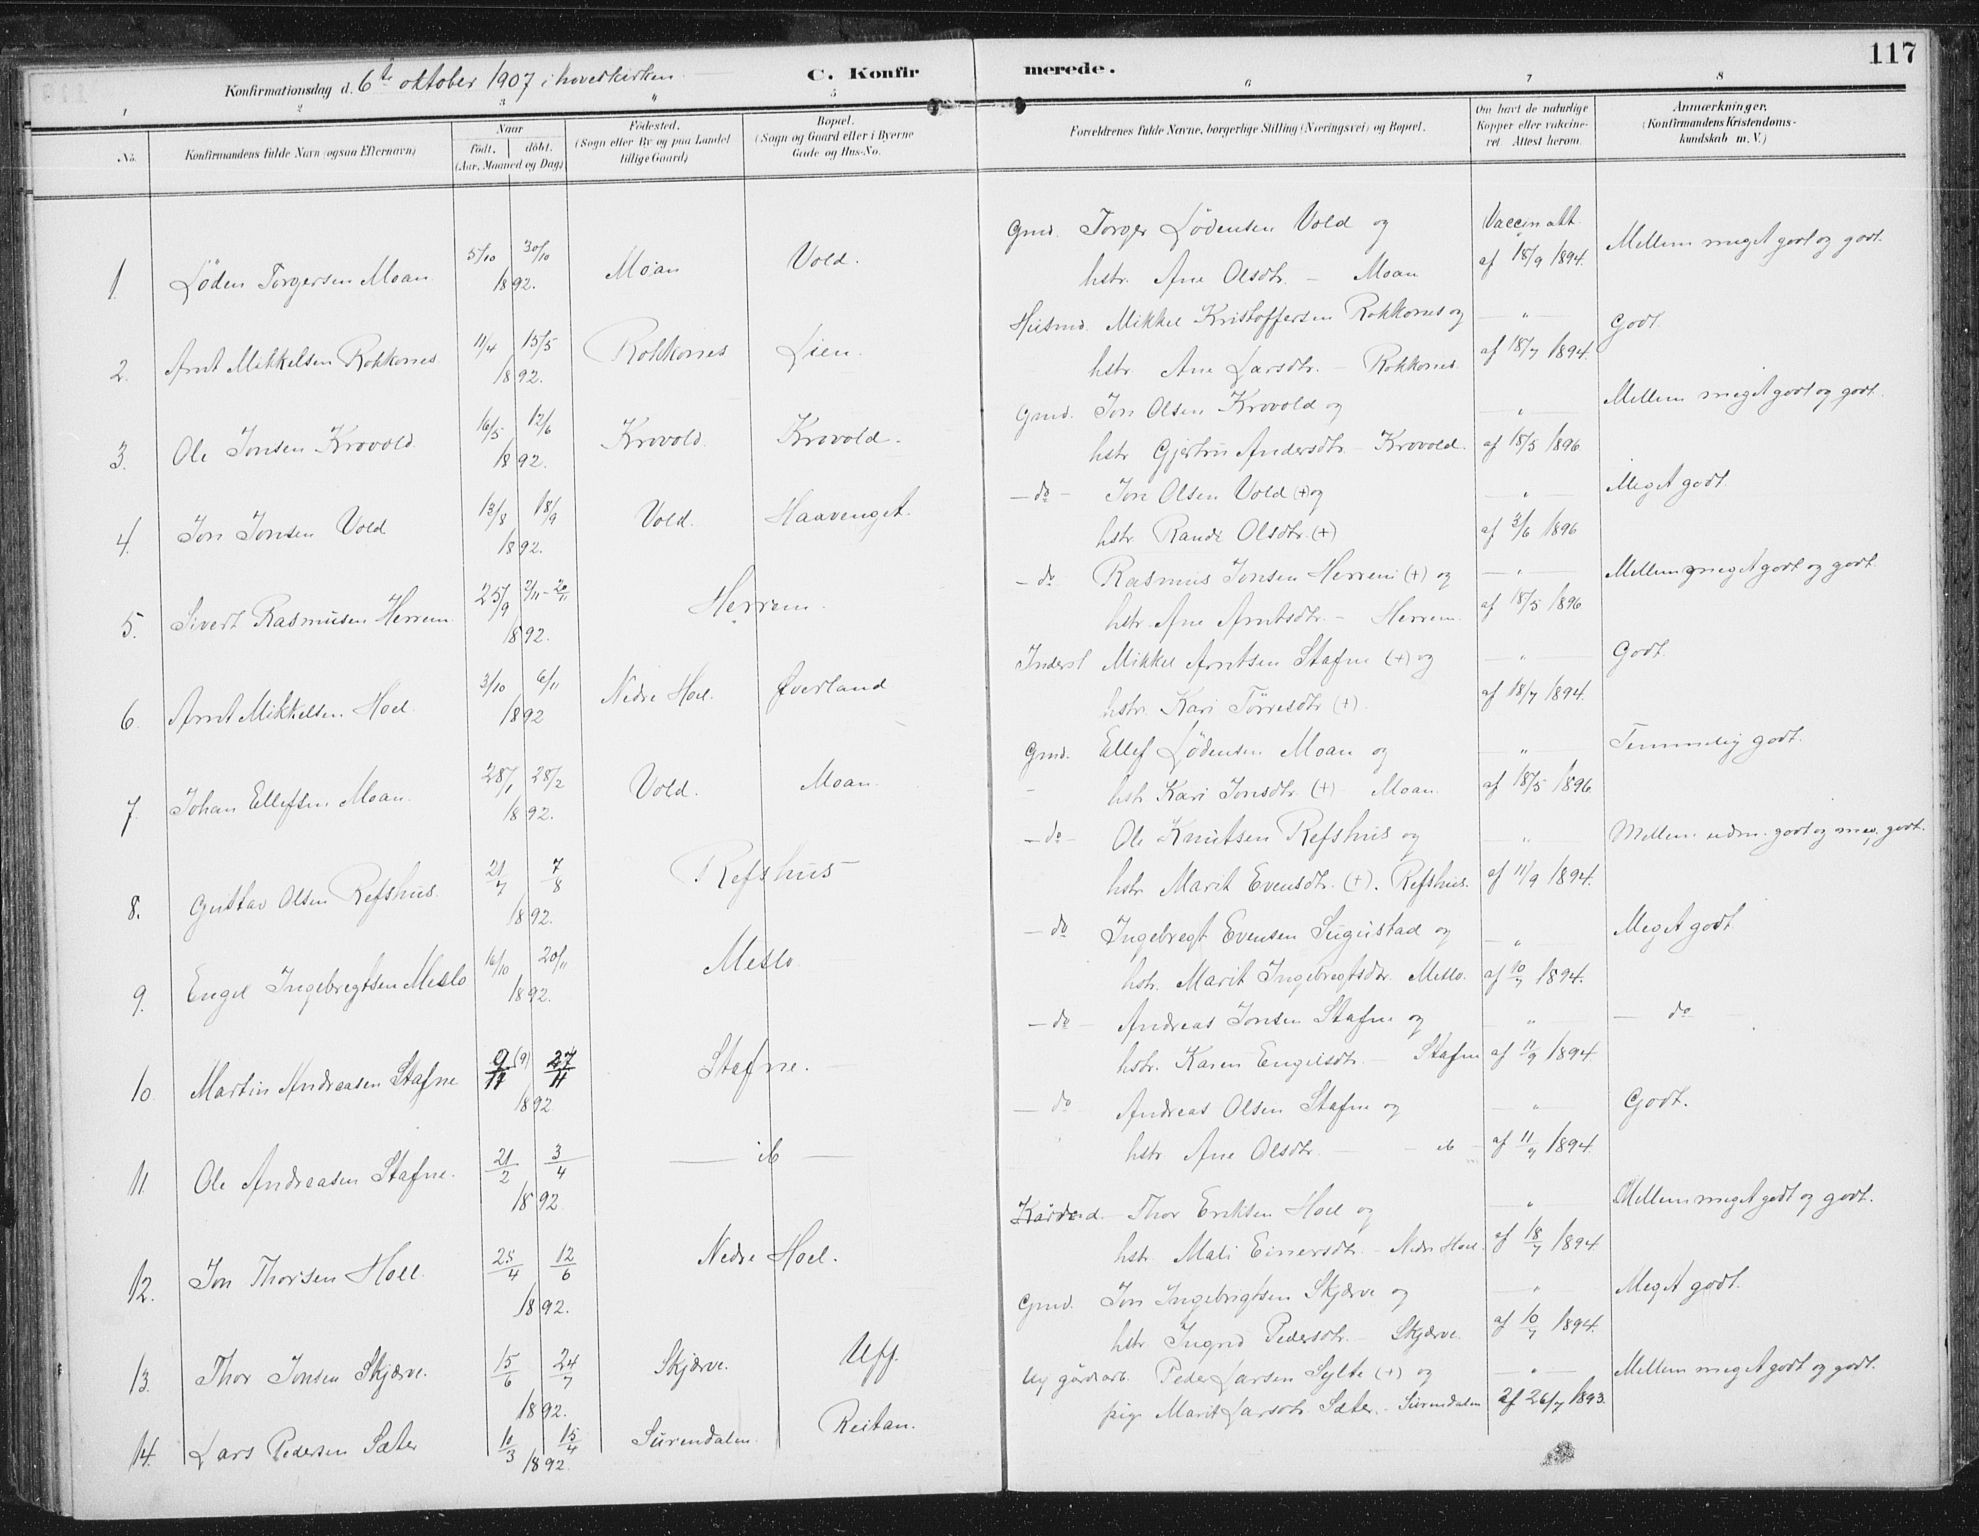 117
Konfirmationsdag d. 6te oktober 1907 i hovedkirken. C. Konfirmerede.
1 2 3 4 5 6 7 8
No. Konfirmandens fulde Navn (ogsaa Efternavn) Naar født, døbt. (Aar, Maaned og Dag) Fødested. (Sogn eller By og paa Landet tillige Gaard) Bopæl. (Sogn og Gaard eller i Byerne Gade og Hus-No. Forældrenes fulde Navne, borgerlige Stilling (Næringsvei) og Bopæl. Om havt de naturlige Kopper eller vaccineret. Attest herom. Anmærkninger. (Konfirmandens Kristendomskundskab m. V.)
Gmd. Torger Lødensen Vold og Vaccin att. Mellem meget godt og godt.
1. Løden Torgersen Moan 5/10 30/10 1892. Moan Vold. hstr. Ane Olsdtr. – Moan af 18/9 1894.
Husmd. Mikkel Kristoffersen Rokkones og — " — Godt.
2. Arnt Mikkelsen Rokkones 11/4 15/5 1892. Rokkones Lien. hstr. Ane Larsdtr. – Rokkones. af 18/7 1894.
Gmd. Jon Olsen Krovold og — " — Mellem meget godt og godt.
3. Ole Jonsen Krovold 16/5 12/6 1892. Krovold. Krovold. hstr. Gjertru Andersdtr. – Krovold. af 18/5 1896
– do – Jon Olsen Vold (+) og — " — Meget godt.
4. Jon Jonsen Vold 13/8 18/9 1892. Vold. Haavenget. hstr. Randi Olsdtr. (+) af 3/6 1896
– do Rasmus Jonsen Herrem (+) og — " — Mellem meget godt og godt.
5. Sivert Rasmusen Herrem 25/9 2/11 – 20/11 1892. Herrem. hstr. Ane Arntsdtr. – Herrem. af 18/5 1896
Inderst Mikkel Arntsen Stafne (+) og — " — Godt.
6. Arnt Mikkelsen Hoel. 3/10 6/11 1892 Nedre Hoel. Øverland hstr. Kari Tørresdtr (+). af 18/7 1894.
Gmd. Ellef Lødensen Moan og — " — Temmelig godt.
7. Johan Ellefsen Moan. 28/1 28/2 1892. Vold. Moan. hstr. Kari Jonsdtr. (+) – Moan. af 18/5 1896.
– do – Ole Knutsen Refshus og " Mellem udm. godt og meg. godt.
8. Gustav Olsen Refshus. 21/7 7/8 1892. Refshus hstr. Marit Evensdtr. (+). Refshus. af 11/9 1894.
– do Ingebregt Evensen Sugustad og — " Meget godt.
9. Engel Ingebregtsen Meslo 16/10 20/11 1892. Meslo hstr. Marit Ingebregtsdtr. Meslo. af 10/7 1894.
– do – Andreas Jonsen Stafne og — " — – do –
10. Martin Andreasen Stafne 9/11 (9) 27/11 1892 Stafne. hstr. Karen Engelsdtr. – Stafne af 11/9 1894.
– do Andreas Olsen Stafne og — " — Godt.
11. Ole Andreasen Stafne. 21/2 3/4 1892 — ib — hstr. Ane Olsdtr. – – ib – af 11/9 1894.
Thor Eriksen Hoel og — " — Mellem meget godt og godt.
12. Jon Thorsen Hoel. 25/4 12/6 1892. Nedre Hoel. hstr. Mali Einersdtr. – Nedre Hoel. af 18/7 1894.
Gmd. Jon Ingebrigtsen Skjærve og — " — Meget godt.
13. Thor Jonsen Skjærve. 15/6 24/7 1892. Skjærve. hstr. Ingrid Pedersdtr. – Skjærve. af 10/7 1894.
Peder Larsen Sylte (+) og — " — Mellem meget godt og godt.
14. Lars Pedersen Sæter 10/3 15/4 1892. Surendalen Reitan. pige Marit Larsdtr. Sæter. – Surendalen af 26/7 1893.